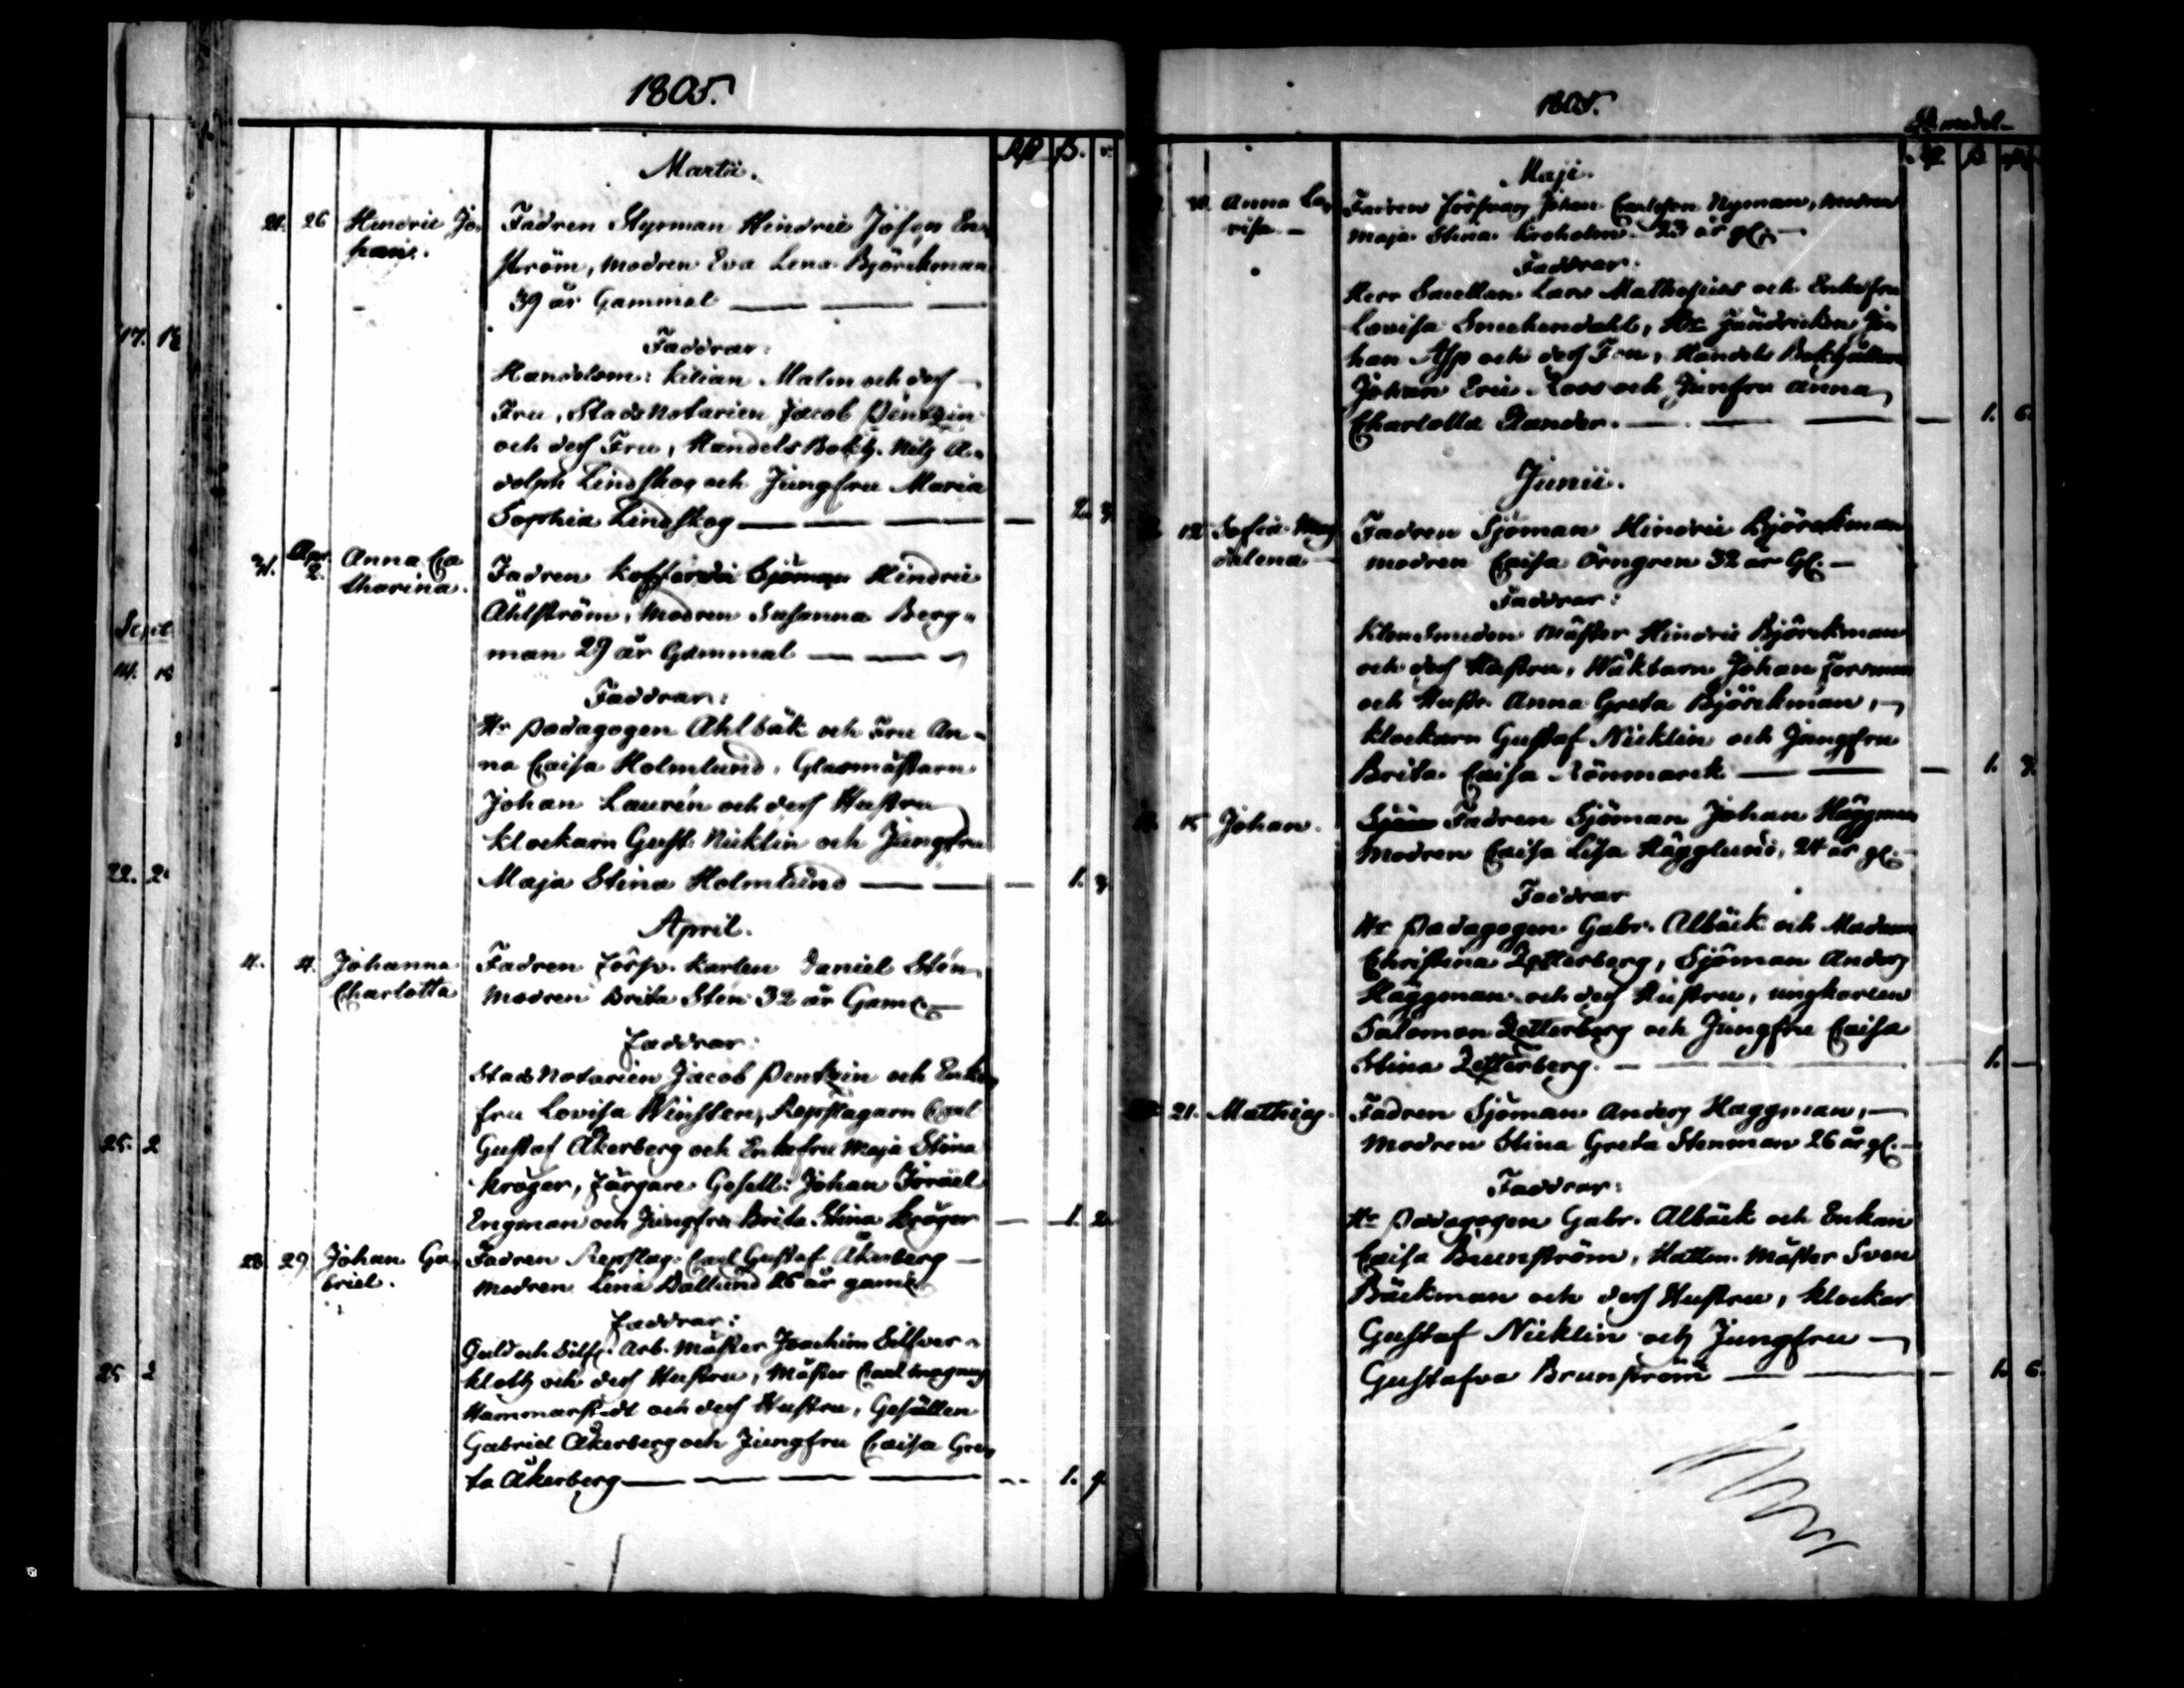 1805.
Martii.
24. 26 Hendric Jo-
han.
Fadren Styrman Hindric Josep En-
ström, modren Eva Lena Björckman
39 år Gammal
Faddrar:
Handelsm: Kilian Malm och dess
Fru, Stads Notarien Jacob Pentzin
och dess Fru, Handels Bokh. Nils A-
dolph Lindskog och Jungfru Maria
Sophia Lindskog — 2.
31. Apr. 2. Anna Ca
tharina.
Fadren Kofferdi Sjöman Hindric
Åhlström, Modren Susanna Berg-
man 29 år Gammal
Faddrar:
Hr Pædagogen Ahlbäk och Fru An-
na Caisa Holmlund, Glasmästarn
Johan Laurén och dess Hustru
Klockarn Gust. Nicklin och Jungfru
Maja Stina Holmlund — 1.
April.
4. 4. Johanna
Charlotta
Fadren Förs. Karlen Daniel Stén
Modren Brita Stén 32 år Gaml.
Faddrar:
Stads Notarien Jacob Pentzin och Enke
fru Lovisa Winsten, Repslagarn Carl
Gustaf Åkerberg och Enkefru Maja Stina
Kröger, Färgare Gesell: Johan Israel
Engman och Jungfru Brita Stina Kröger — 1. 2.
28. 29. Johan Ga
briel.
Fadren Repslag: Carl Gustaf Åkerberg
Modren Lena Dallund 26 år gaml.
Faddrar:
Guld och Silf. Arb. Mäster Joachim Silfver-
klotz och dess Hustru, Mäster Carl
Hammarstedt och dess Hustru, Gesällen
Gabriel Åkerberg och Jungfru Caisa Gre
ta Åkerberg — 1.
17.
Sept
14.
22. 2
25. 2
25 2
1805.
Maji.
Anna Lo
visa
Fadren Försvarsk Johan Carlsson Nyman, Modren
Maja Stina Kroholm 23 år gl.
Faddrar:
Herr Lars Mathesius och Enkefru
Lovisa, Hr Fändricken Jo
han Asp och dess Fru, Handels Bokhållaren
Johan Eric Roos och Jungfru Anna
Charlotta Elander. — 1. 6.
Junii.
12 Sofia Mag
dalena
Fadren Sjöman Hindric Björckman
modren Caisa Örngren 32 år Gl.
Faddrar:
Klensmeden Mäster Hindric Björckman
och dess Hustru, Wäktarn Johan Forsman
och Hustr. Anna Greta Björckman,
Klockarn Gustaf Nicklin och Jungfru
Brita Caisa Rönmarck — 1.
15 Johan.
Fadren Sjöman Johan Häggman
Modren Caisa Lisa Hägglund, 24 år gl.
Faddrar
Hr Pædagogen Gabr. Albäck och Madam
Christina Zetterberg, Sjöman Anders
Häggman och dess Hustru, ungkarlen
Salomon Zetterberg och Jungfru Caisa
Stina Zetterberg. — 1. —
21. Mathias.
Fadren Sjöman Anders Häggman,
Modren Stina Greta Stenman 26 år gl.
Faddrar:
Hr Pædagogen Gabr. Albäck och Enkan
Caisa Brunström, Hattm. Mäster Sven
Bäckman och dess Hustru, Klockar
Gustaf Nicklin och Jungfru
Gustafva Brunström — 1. 6.